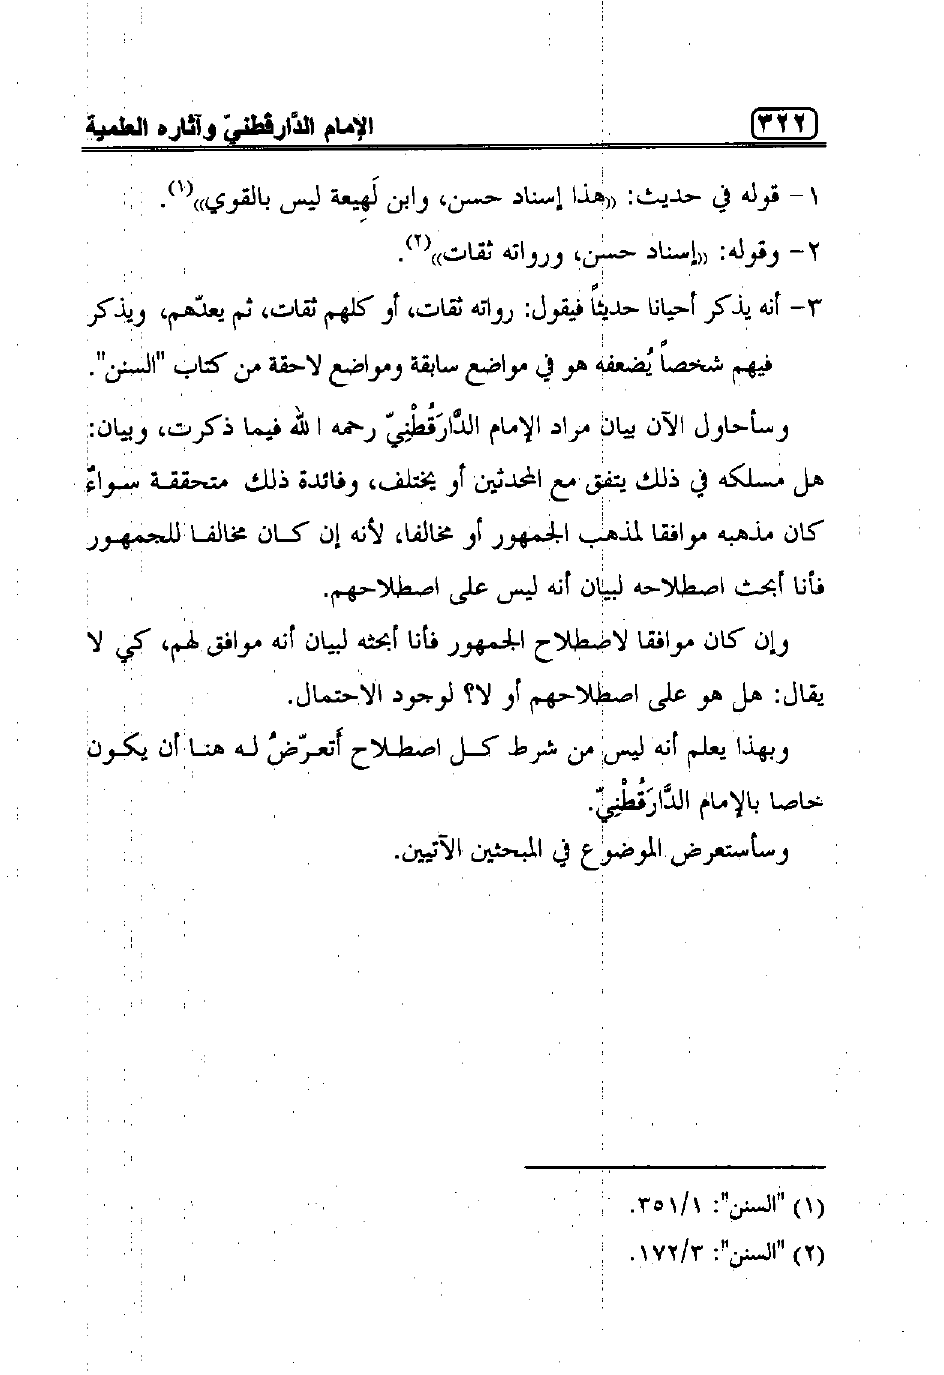 ٣٢٢
الإمام الدَّارقطنيّ وآثاره العلمية
١- قوله في حديث: «هذا إسناد حسن، وابن لَهِيعة ليس بالقوي»(١).
٢- وقوله: «إسناد حسن، ورواته ثقات»(٢).
٣- أنه يذكر أحيانا حديثاً فيقول: رواته ثقات، أو كلهم ثقات، ثم يعدّهم، ويذكر
فيهم شخصاً يُضعفه هو في مواضع سابقة ومواضع لاحقة من كتاب "السنن".
وسأحاول الآن بيان مراد الإمام الدَّارَقُطْنِيّ رحمه الله فيما ذكرت، وبيان:
هل مسلكه في ذلك يتفق مع المحدثين أو يختلف، وفائدة ذلك متحققة سواءٌ
كان مذهبه موافقا لمذهب الجمهور أو مخالفا، لأنه إن كان مخالفا للجمهور
فأنا أبحث اصطلاحه لبيان أنه ليس على اصطلاحهم.
وإن كان موافقا لاصطلاح الجمهور فأنا أبحثه لبيان أنه موافق لهم، كي لا
يقال: هل هو على اصطلاحهم أو لا؟ لوجود الاحتمال.
وبهذا يعلم أنه ليس من شرط كل اصطلاح أَتعرّضُ له هنا أن يكون
خاصا بالإمام الدَّارَقُطْنِيّ.
وسأستعرض الموضوع في المبحثين الآتيين.
(١) "السنن": ٣٥١/١.
(٢) "السنن": ١٧٢/٣.